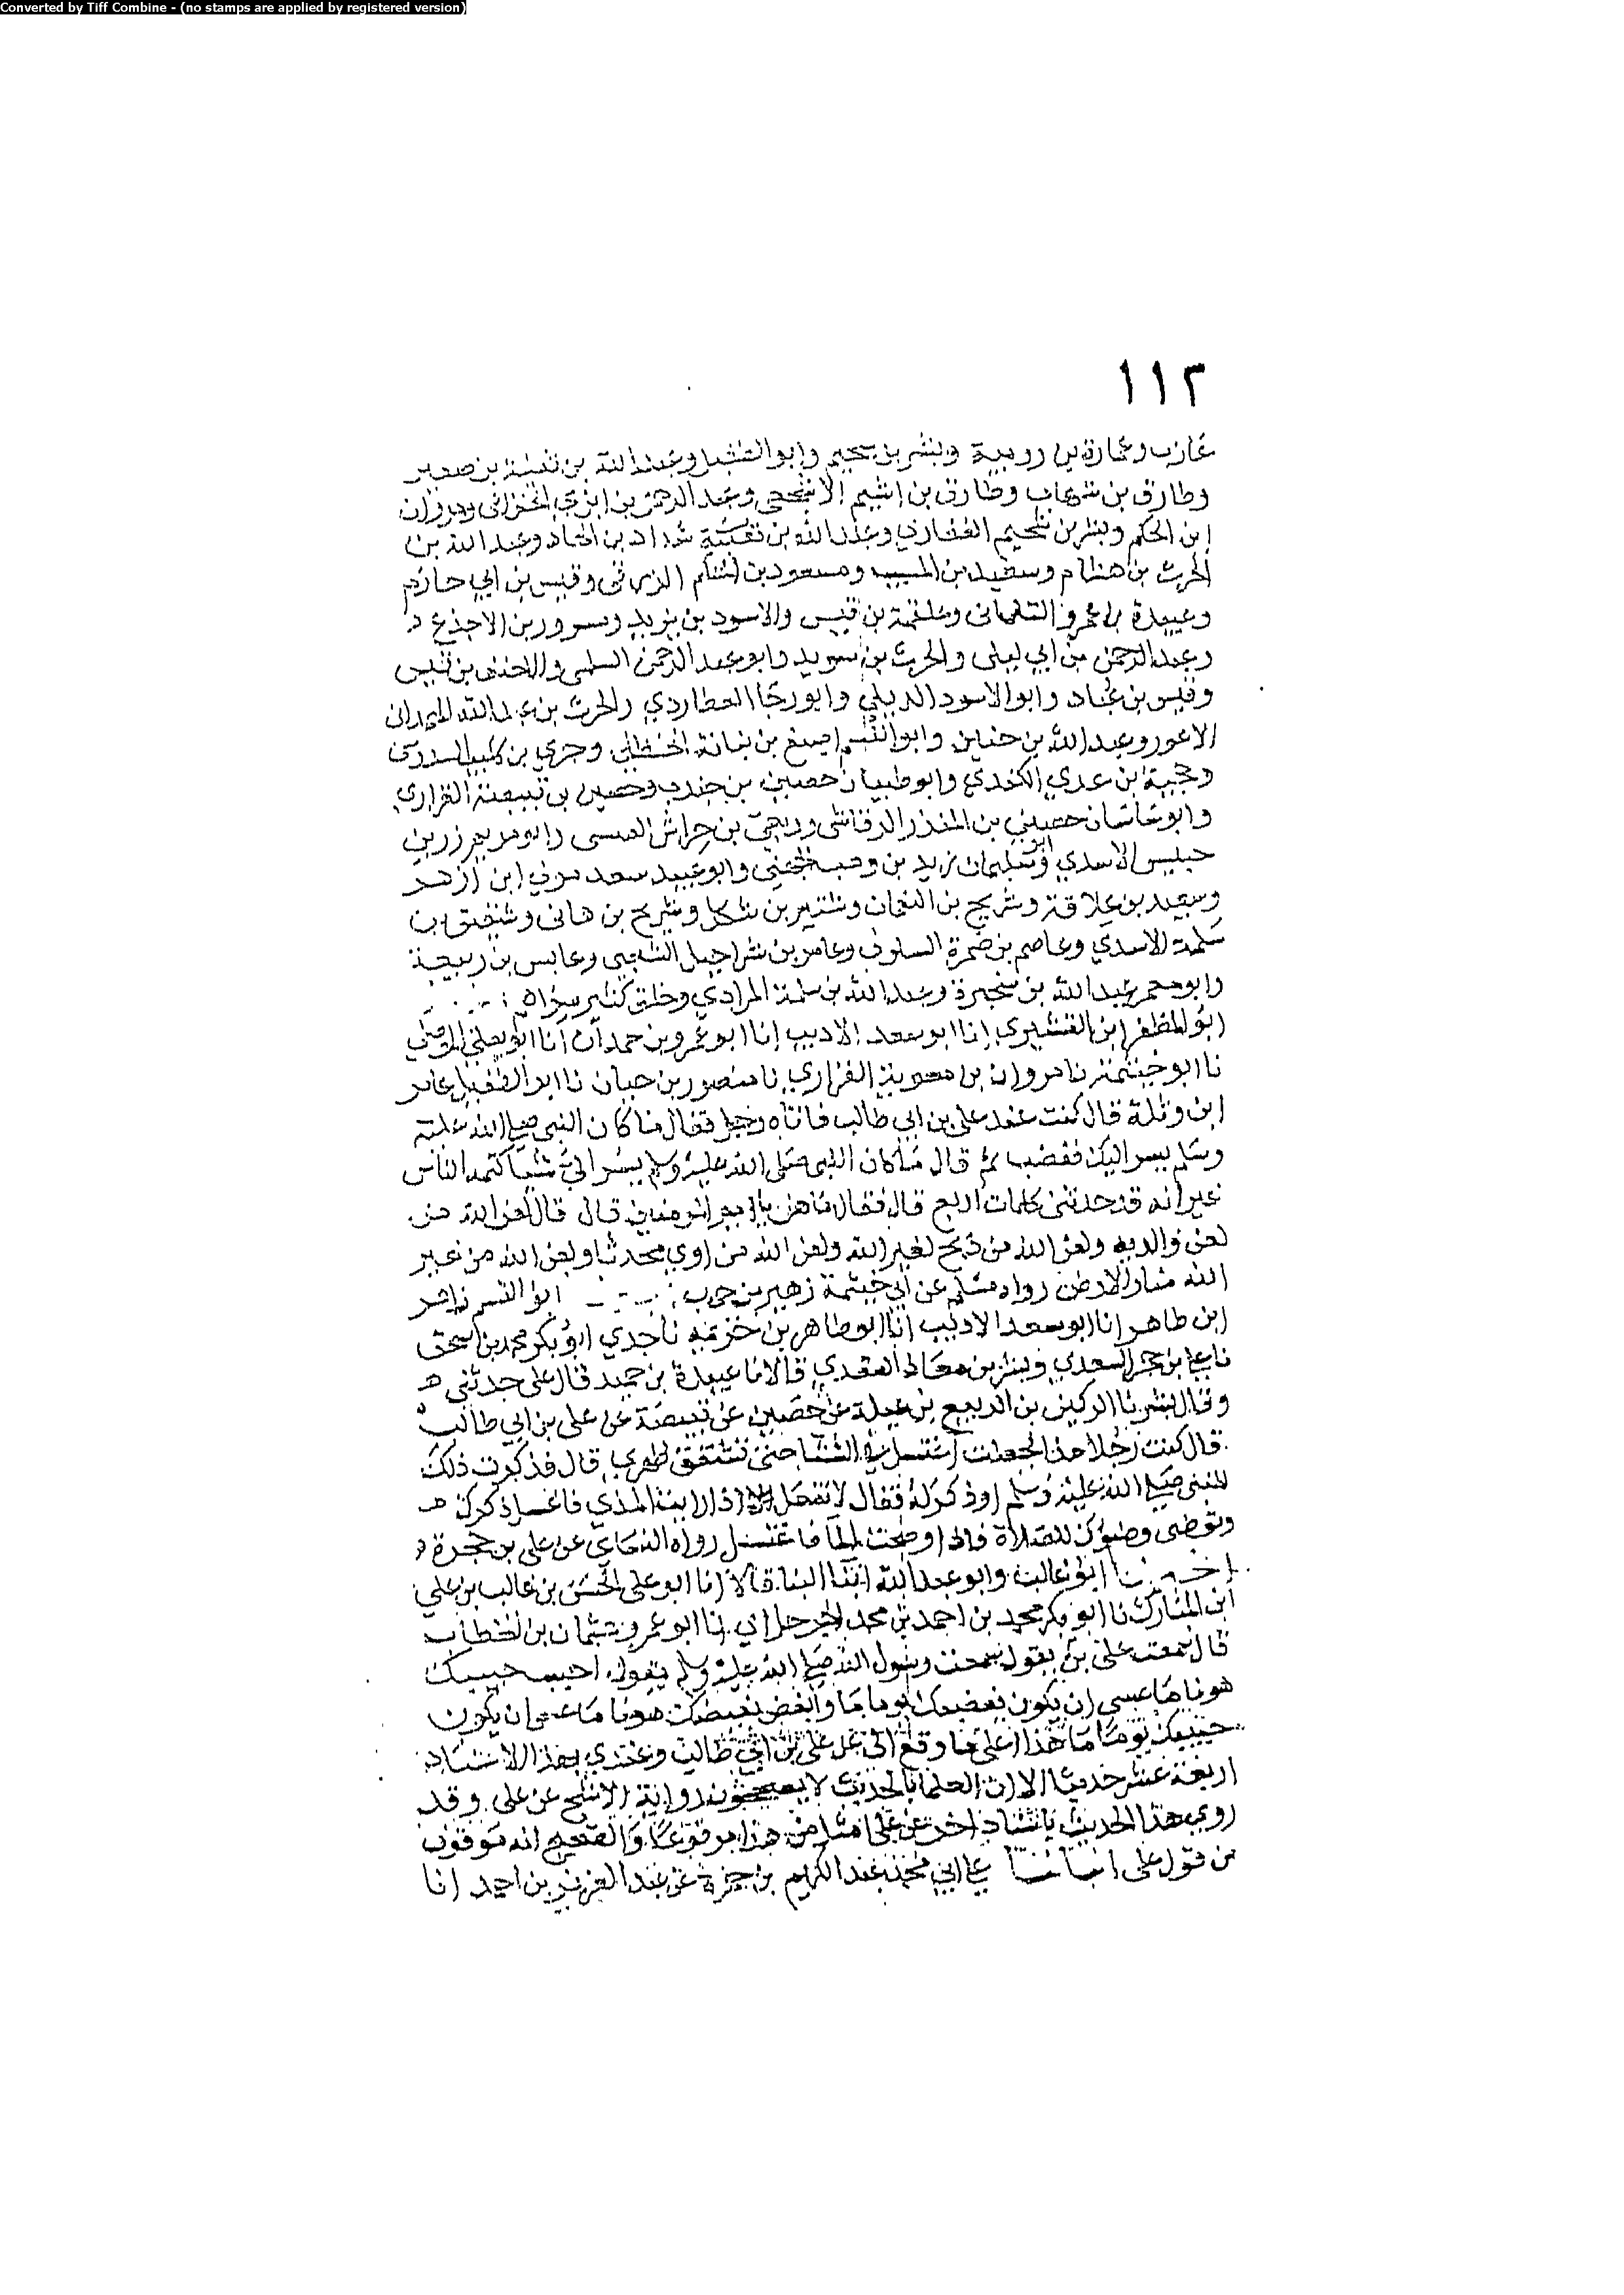 Converted by Tiff Combine - (no stamps are applied by registered version)
١١٢
عازب وعمارة بن رويبة وبشر بن سحيم وابو الطفيل وعبد الله بن ثعلبة بن صعير
وطارق بن شهاب وطارق بن اشيم الاشجعي وعبد الرحمن بن ابزي الخزاعي ومروان
ابن الحكم وبشر بن سحيم الغفاري وعبد الله بن شداد بن الهاد وعبد الله بن
الحرث بن هشام وسعيد بن المسيب ومسعود بن الحكم الزرقي وقيس بن ابي حازم
وعبيدة بن عمرو السلماني وعلقمة بن قيس والاسود بن يزيد ومسروق بن الاجدع
وعبد الرحمن بن ابي ليلى والحرث بن سويد وابو عبد الرحمن السلمي والاحنف بن قيس
وقيس بن عباد وابو الاسود الديلي وابو رجا العطاردي والحرث بن عبد الله الهمداني
الاعور وعبد الله بن حنين وابو القسم اصبغ بن نباتة الحنظلي وجري بن كليب السدوسي
وحجية بن عدي الكندي وابو ظبيان حصين بن جندب وحصين بن قبيصة الفزاري
وابو ساسان حصين بن المنذر الرقاشي وربعي بن حراش العبسي وابو مريم زر بن
حبيش الاسدي وابو سليمان زيد بن وهب الجهني وابو عبيد سعد مولي ابن ازهر
وسعيد بن علاقة وشريح بن النعمان وشتير بن شكل وشريح بن هاني وشقيق بن
سلمة الاسدي وعاصم بن ضمرة السلولي وعامر بن شراحيل الشعبي وعابس بن ربيعة
وابو معمر عبد الله بن سخبرة وعبد الله بن سلمة المرادي وخلق كثير سواهم
ابو المظفر ابن القشيري انا ابو سعد الاديب انا ابو عمرو بن حمدان انا ابو يعلي الموصلي
نا ابو خيثمة نا مروان بن معوية الفزاري نا منصور بن حيان نا ابو الطفيل عامر
ابن وثلة قال كنت عند علي بن ابي طالب فاتاه رجل فقال ما كان النبي صلى الله عليه
وسلم يسر اليك فغضب ثم قال ما كان النبي صلى الله عليه وسلم يسر الي شيا كتمه الناس
غير انه قد حدثني كلمات اربع قال فقال ما هن يا امير المومنين قال قال لعن الله من
لعن والديه ولعن الله من ذبح لغير الله ولعن الله من اوي محدثا ولعن الله من غير
الله منار الارض رواه مسلم عن ابي خيثمة زهير بن حرب ابو القسم زاهر
ابن طاهر انا ابو سعد الاديب انا ابو طاهر بن خزيمه نا جدي ابو بكر محمد بن اسحق
نا علي بن حجر السعدي وبشر بن معاذ العقدي قالا نا عبيدة بن حميد قال علي حدثني
وقال بشر نا الركين بن الربيع بن عميلة عن حصين عن قبيصة عن علي بن ابي طالب
قال كنت رجلا مذا فجعلت اغتسل في الشتا حتى تشقق ظهري قال فذكرت ذلك
للنبي صلى الله عليه وسلم او ذكر له فقال لا تفعل اذا رايت المذي فاغسل ذكرك
وتوضي وضوك للصلاة فاذا فضخت الما فاغتسل رواه النساي عن علي بن حجر
اخبرنا ابو غالب وابو عبد الله ابنا البنا قالا انا ابو علي الحسن بن غالب بن علي
ابن المبارك نا ابو بكر محمد بن احمد بن محمد نا ابو عمرو عثمان بن الخطاب
قال سمعت علي يقول سمعت رسول الله صلى الله عليه وسلم يقول احبب حبيبك
هونا ما عسي ان يكون بغيضك يوما ما وابغض بغيضك هونا ما عسي ان يكون
حبيبك يوما ما هذا اعلى ما وقع الي عن علي بن ابي طالب وعندي بهذا الاسناد
اربعة عشر حديثا الا ان العلما بالحديث لا يصححون رواية الاشج عن علي وقد
روي هذا الحديث باسناد اخر عن علي امثل من هذا مرفوعا والصحيح انه موقوف
من قول علي انبانا ابي محمد عبد الكريم بن حمزة عن عبد العزيز بن احمد انا